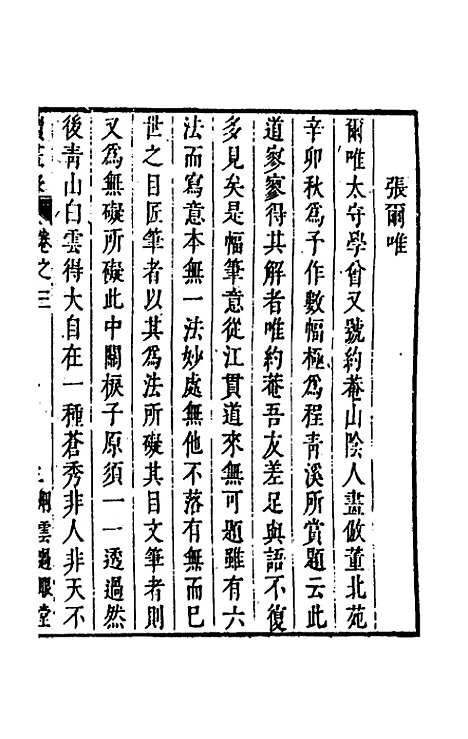 張爾唯
爾唯太守學曾又號約菴山陰人畫倣董北苑
辛卯秋爲予作數幅極爲程青溪所賞題云此
道寥寥得其解者唯約菴吾友差足與語不復
多見矣是幅筆意從江貫道來無可題雖有六
法而寫意本無一法妙處無他不落有無而已
世之目匠筆者以其爲法所礙其目文筆者則
又爲無礙所礙此中關棙子原須一一透過然
後青山白雲得大自在一種蒼秀非人非天不
讀畫錄 卷之三 雲過眼堂